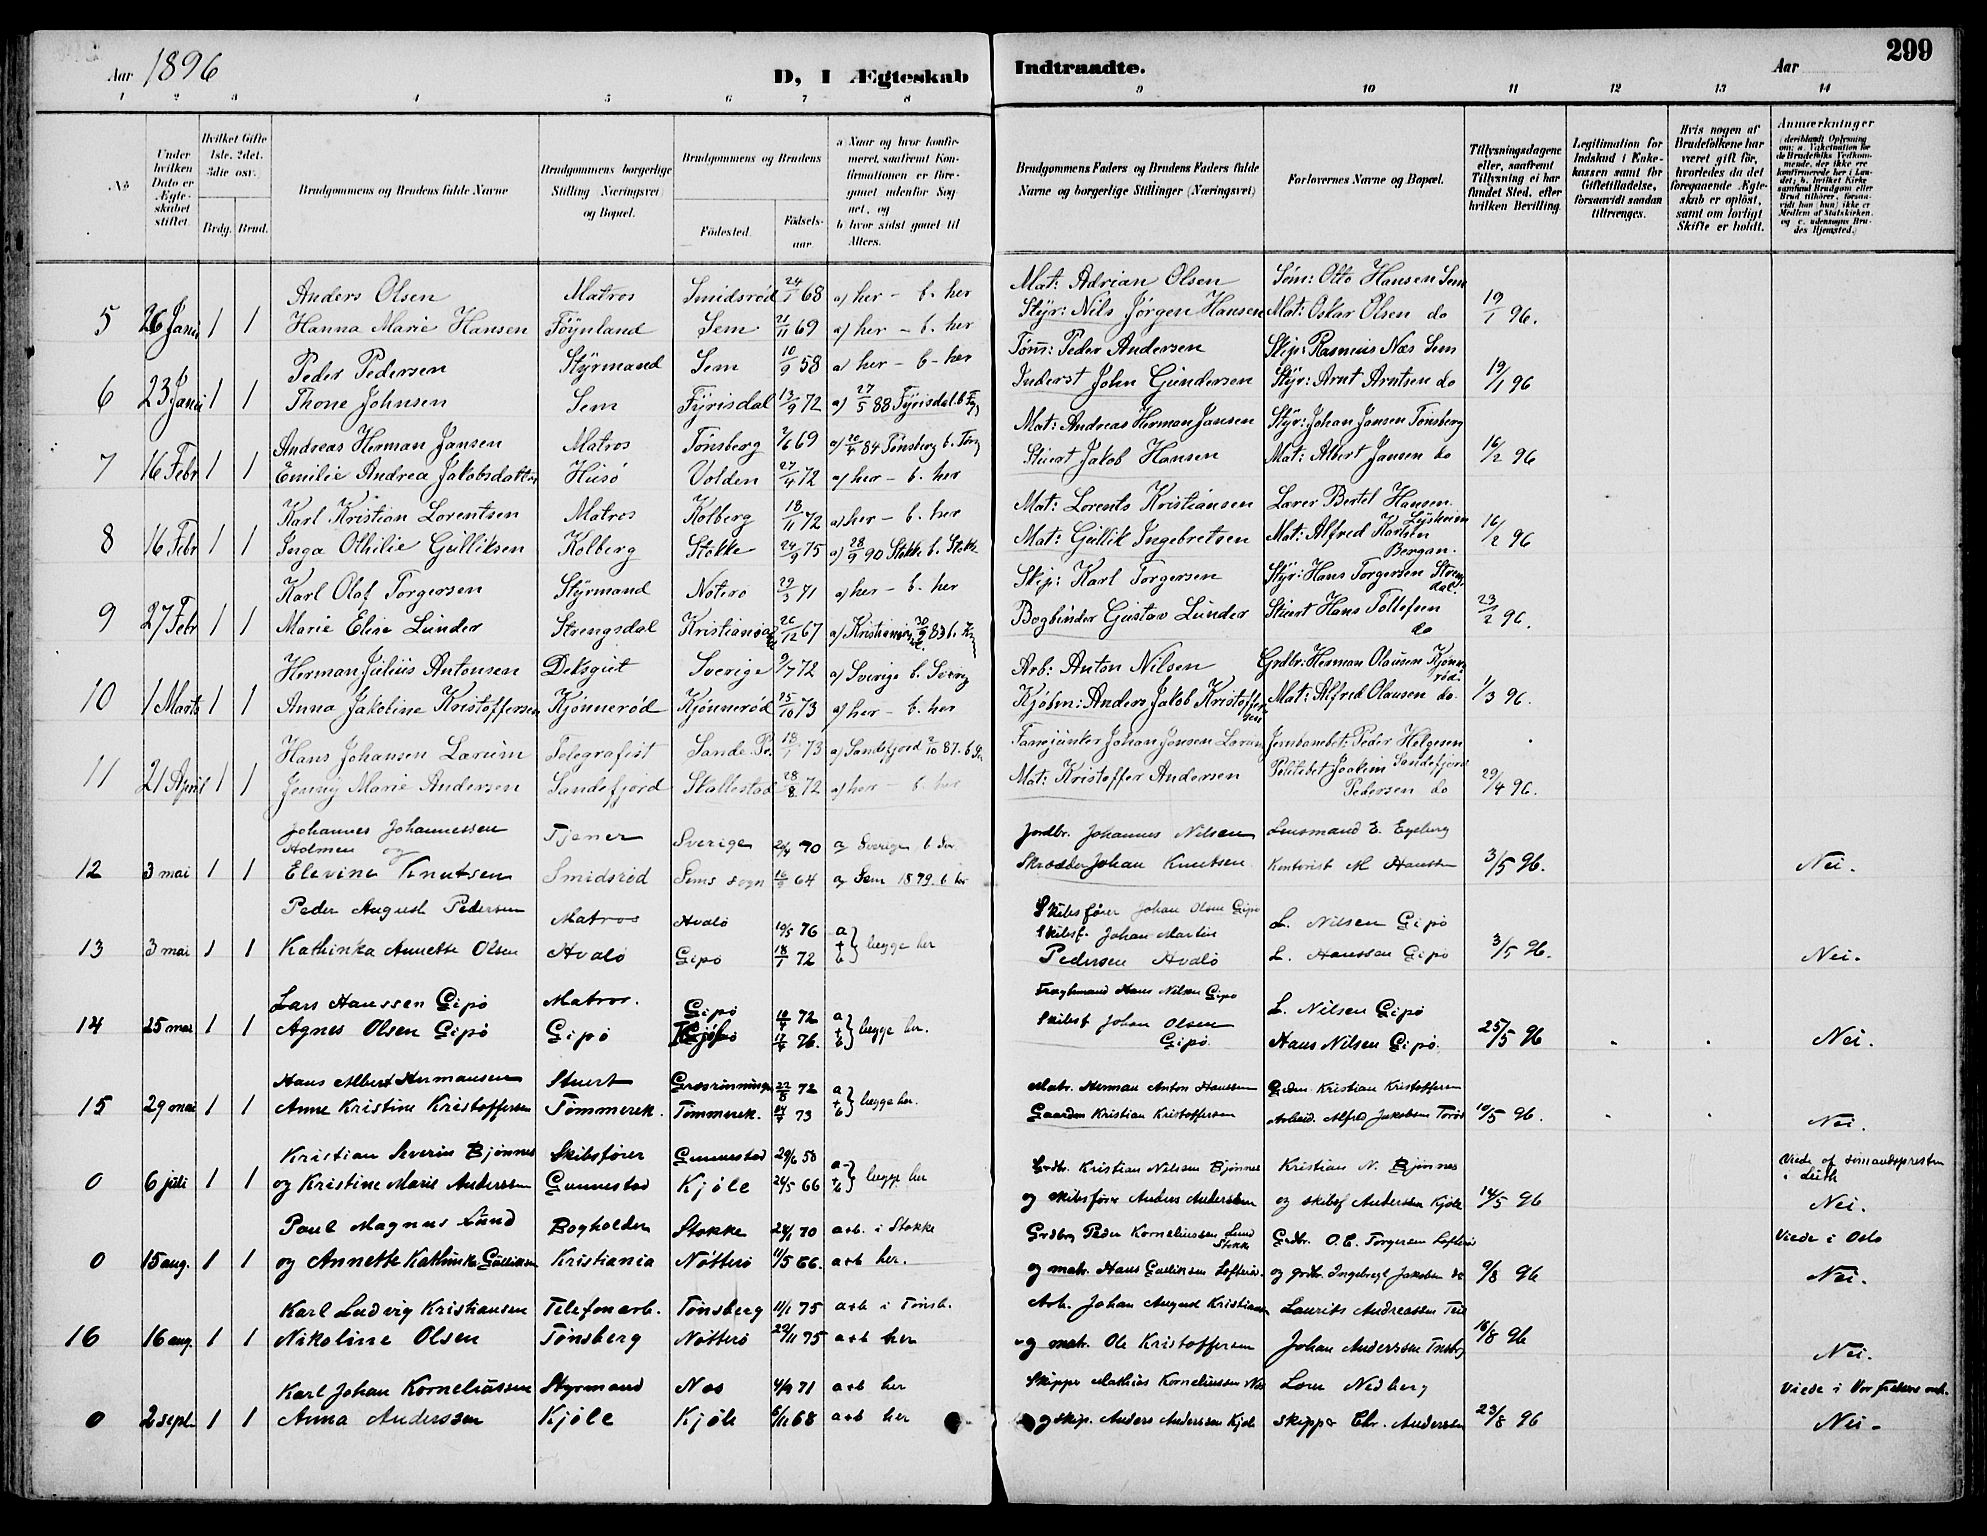 299
Aar 1896
D, I Ægteskab Indtraadte.
Aar
1 2 3 4 5 6 7 8 9 10 11 12 13 14
No
Under hvilken Dato er Ægteskabet stiftet
Hvilket Gifte 1ste, 2det, 3die osv.
Brdg. Brud.
Brudgommens og Brudens fulde Navne
Brudgommens borgerlige Stilling (Næringsvei) og Bopæl.
Brudgommens og Brudens
Fødested.
Fødselsaar
a Naar og hvor konfirmeret, saafremt Konfirmationen er foregaaet udenfor Sognet, og
b hvor sidst gaaet til Alters.
Brudgommens Faders og Brudens Faders fulde Navne og borgerlige Stillinger (Næringsvei)
Forlovernes Navne og Bopæl.
Tillysningsdagene eller, saafremt Tillysning ei har fundet Sted, efter hvilken Bevilling
Legitimation for Indskud i Enkekassen samt for Giftetilladelse, forsaavidt saadan tiltrænges.
Hvis nogen af Brudefolkene har været gift før, hvorledes da det foregaaende Ægteskab er opløst, samt om lovligt Skifte er holdt.
Anmærkninger
Anders Olsen Matros Smidsrød 24/1 68 a) her - b. her Mat: Adrian Olsen Søm: Otto Hansen Sem
5 26 Janu 1 1 Hanna Marie Hansen Føynland Sem 21/11 69 a) her - b. her Styr: Nils Jørgen Hansen Mat: Oskar Olsen do 19/1 96.
Peder Pedersen Styrmand Sem 10/9 58 a) her - b - her Tøm: Peder Andersen Skip: Rasmus Næs Sem
6 23 Janu 1 1 Thone Johnsen Sem Fyrisdal 13/9 72 a) 27/5 88 Fyrisdal. b Inderst John Gundersen Styr: Arnt Arntsen do 19/1 96
Andreas Herman Jansen Matros Tønsberg 2/6 69 a) 84 Tønsberg b. Mat: Andreas Herman Jansen Styr: Johan Jansen Tønsberg
7 16 Febr 1 1 Emilie Andrea Jakobsdatter Husø Volden 27/4 72 a) her - b. her Stuert Jakob Hansen Mat: Albert Jansen do 16/2 96
Karl Kristian Lorentsen Matros Kolberg 18/11 72 a) her - b. her Mat: Lorents Kristiansen Lærer Bertel Hansen
8 16 Febr 1 1 Inga Othilie Gulliksen Kolberg Stokke 24/9 75 a) 28/9 90 Stokke b. Stokke Mat: Gullik Ingebretsen Mat: Alfred Karlsen Bergan. 16/2 96
Karl Olaf Torgersen Styrmand Nøterø 29/3 71 a) her - b. her Skip: Karl Torgersen Styr: Hans Torgersen
9 27 Febr 1 1 Marie Elise Lunder Strengsdal 26/12 67 Bogbinder Gustav Lunder Stuert Hans Tollefsen do 23/2 96.
Herman Julius Antonsen Dæksgut Sverige 9/7 72 a) Sverige b. Sverig Arb: Anton Nilsen Grdbr: Herman Olausen Kjønnerød.
10 1 Marts 1 1 Anna Jakobine Kristoffersen Kjønnerød Kjønnerød 25/10 73 a) her - b. her Kjøbm: Anders Jakob Kristoffersen Mat: Alfred Olausen do. 1/3 96.
Hans Johansen Larum Telegrafist Sande Pr. 18/1 73 a) Sandefjord 2/10 87. b Johan Jansen Larum Jernbanbet: Peder Helgesen Sandefjord
11 21 April 1 1 Jenny Marie Andersen Sandefjord Skallestad 28/8 72 a) her - b. her Mat: Kristoffer Andersen Politibet Joakim Pedersen do 29/4 96.
Johannes Johannessen Holmen og Tjener Sverige 70 a Sverige b Jordbr. Johannes Nilsen Lensmand E. Egeberg
12 3 mai 1 1 Elevine Knutsen Smidsrød Sems sogn 64 a Sem 1879. b her Skrædder Johan Knutsen Kontorist M Hanssen 3/5 96. Nei.
Peder August Pedersen Matros Hvalø 10/5 76 a + b } begge her Skibsfører Johan Olsen Gipø L. Nilsen Gipø
13 3 mai 1 1 Kathinka Annette Olsen Hvalø Gipø 18/1 72 Skibsf. Johan Martin Pedersen Hvalø L. Hanssen Gipø 3/5 96. Nei.
Lars Hanssen Gipø Matros. Gipø 72 a + b } begge her. Hans Nilsen Gipø L. Nilsen Gipø
14 25 mai 1 1 Agnes Olsen Gipø Gipø 76. Skibsf Johan Olsen Gipø. Hans Nilsen Gipø. 25/5 96 Nei.
Hans Albert Hermansen Stuert 22/8 72 a + b } begge her. Matr. Herman Anton Hanssen Kristian Kristoffersen
15 29 mai 1 1 Anne Kristine Kristoffersen Tømmerek. Tømmerek. 73 Kristian Kristoffersen Arbeid. Alfred Jakobsen 10/5 96. Nei.
Kristian Severin Bjønnes Skibsfører Gunnestad 29/6 58 a + b } begge her Grdbr. Kristian Nilsen Bjønnes Kristian N. Bjønnes Viede af sømandspresten i Leith
0 6 juli 1 1 og Kristine Marie Anderssen Gunnestad Kjøle 24/5 66 og skibsfører Anders Anderssen og skibsf Anderssen Kjøle 14/5 96 Nei.
Paul Magnus Lund Bogholder Stokke 24/1 70 a+b. i Stokke Grdbrg Peder Korneliussen Lund Stokke Grdbr. O. E. Torgersen Viede i Oslo
0 15 aug. 1 1 og Annette Kathinka Gulliksen Kristiania Nøtterø 11/5 66. a+b her. og matr. Hans Gulliksen og grdbr. Ingebregt Jakobsen do 9/8 96 Nei.
Karl Ludvig Kristiansen Telefonarb. Tønsberg 11/1 75 a+b i Tønsb. Arb. Johan August Kristiansen Laurits Andreassen
16 16 aug. 1 1 Nikoline Olsen Tønsberg Nøtterø 29/11 75 a+b her og matr. Ole Kristoffersen Johan Anderssen Tnsbg 16/8 96 Nei.
Karl Johan Korneliussen Styrmand Næs 4/9 71 a+b her Skipper Mathias Korneliussen Næs Nedberg Viede i Vor Frelsers
0 2 sept. 1 1 Anna Anderssen Kjøle Kjøle 5/11 68 a+b her og skip. Anders Anderssen Kjøle skipper Chr. Anderssen 23/8 96 Nei.